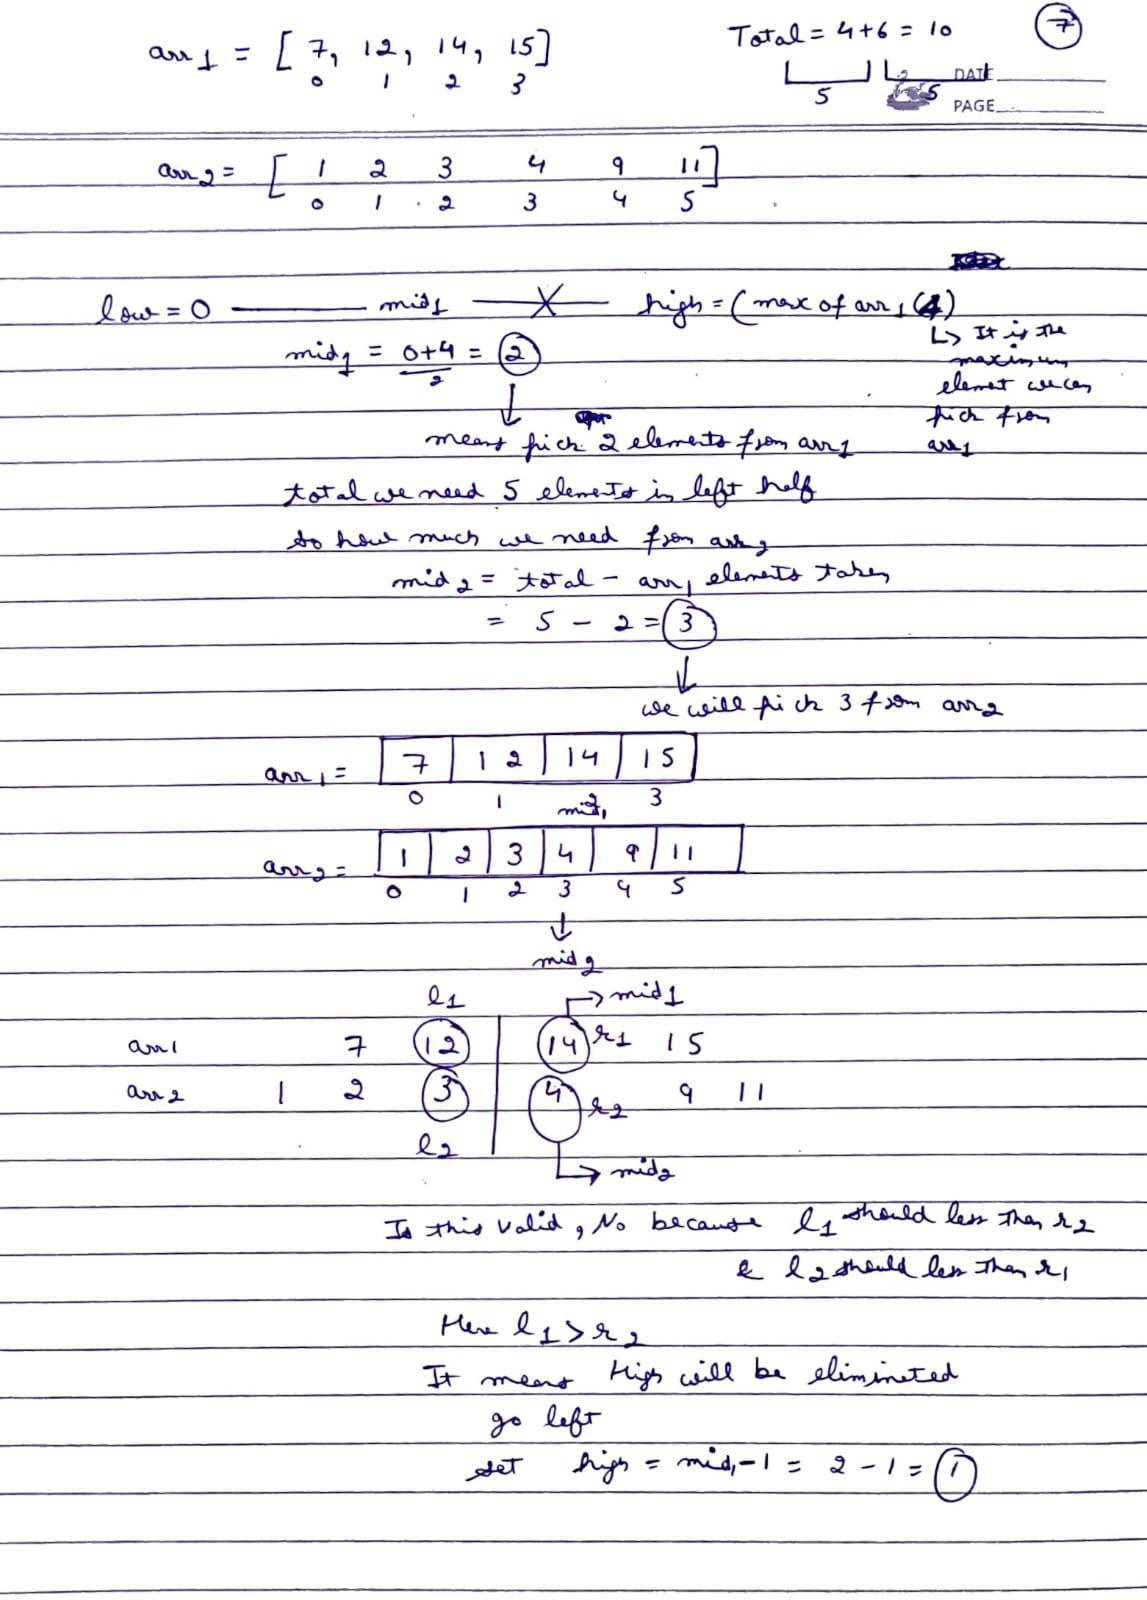 Total = 4+6 = 10
7
arr1 = [ 7, 12, 14, 15]
0 1 2 3
5 5
DATE
PAGE
arr2 = [ 1 2 3 4 9 11]
0 1 2 3 4 5
low = 0 mid1 X high = (max of arr1 (4)
↳ It is the
maximum
element we can
pick from
arr1
mid1 = 0+4 = 2
2
↓
means pick 2 elements from arr1
total we need 5 elements in left half
so how much we need from arr2
mid2 = total - arr1 elements taken
= 5 - 2 = 3
↓
we will pick 3 from arr2
arr1 = 7 12 14 15
0 1 2 3
mid1
arr2 = 1 2 3 4 9 11
0 1 2 3 4 5
↓
mid2
l1 → mid1
arr1 7 12 14 r1 15
arr2 1 2 3 4 r2 9 11
l2
→ mid2
Is this valid, No because l1 should less than r2
& l2 should less than r1
Here l1 > r2
It means High will be elimineted
go left
set high = mid1-1 = 2 - 1 = 1